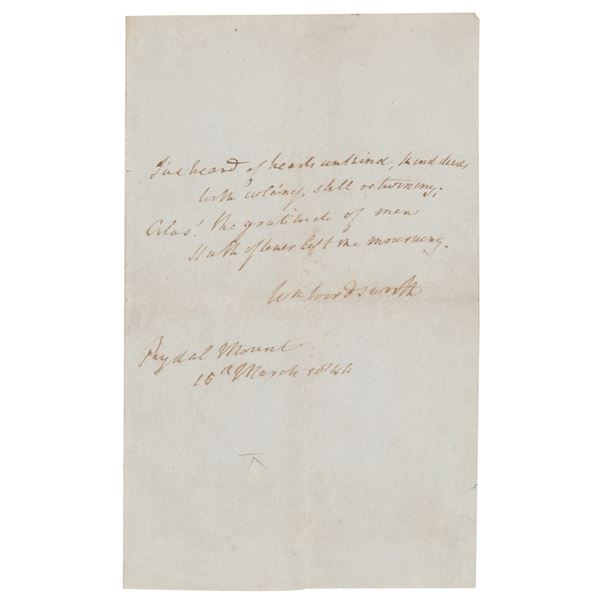 I've heard of hearts unkind, kind deeds
With coldness still returning;
Alas! the gratitude of men
Hath oftener left me mourning.
Wm Wordsworth
Rydal Mount
15th March 1844